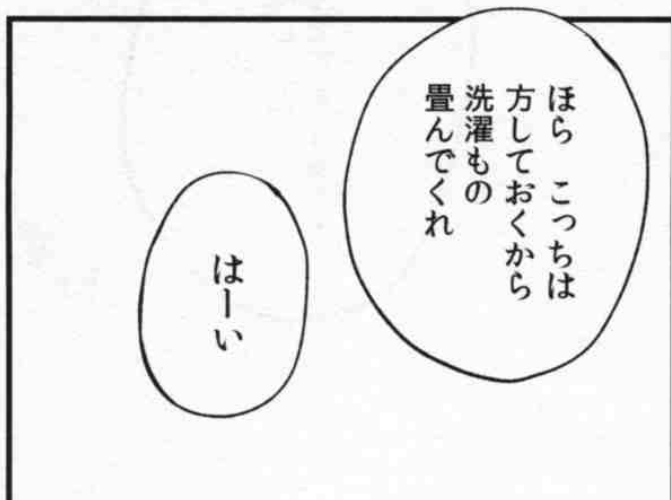 ほら　こっちは
方しておくから
洗濯もの
畳んでくれ
はーい